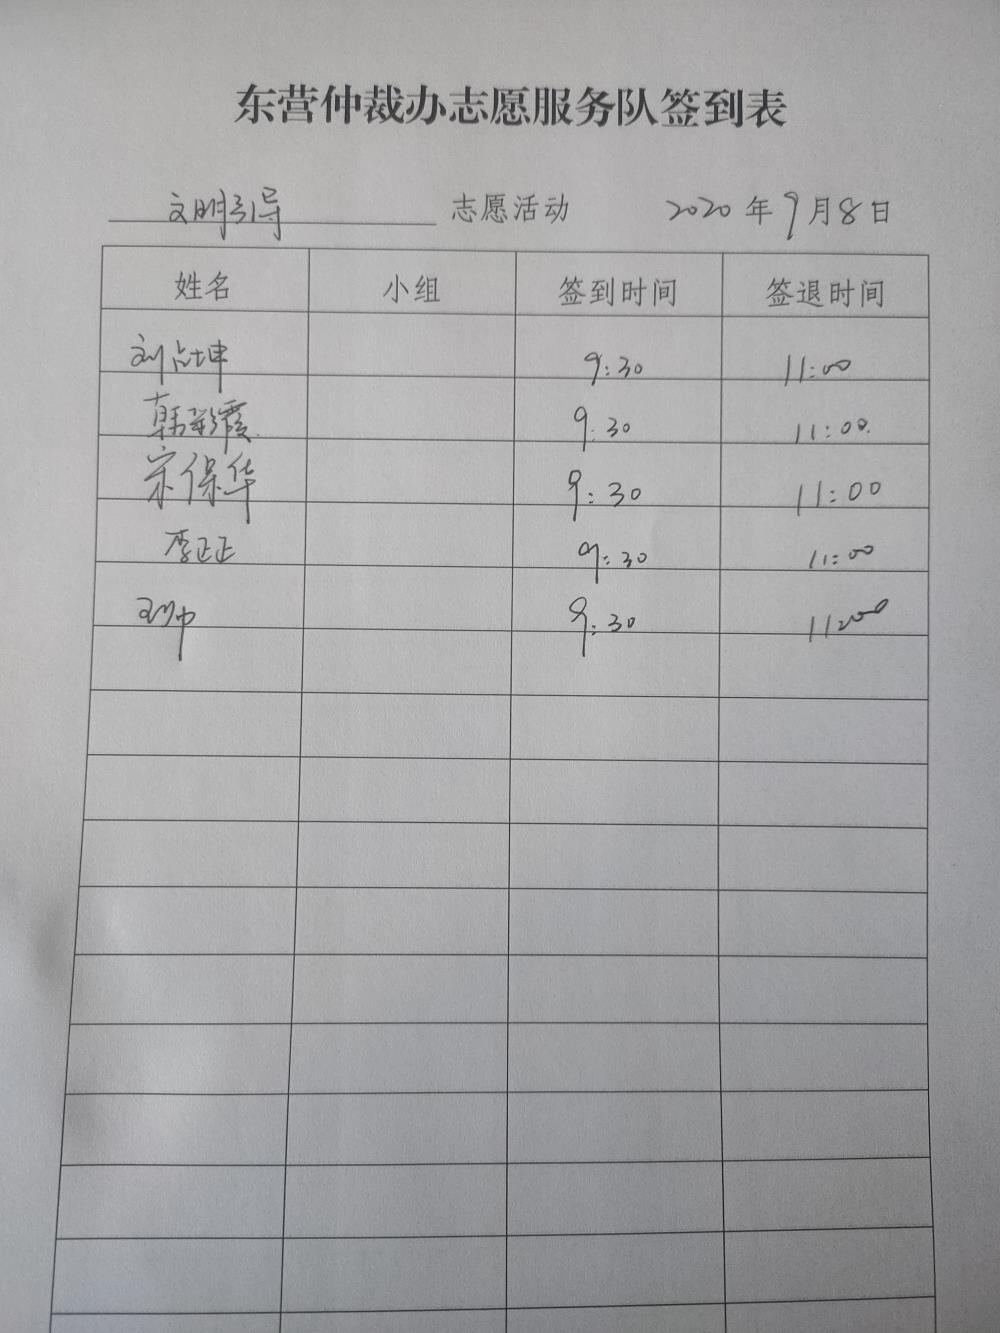 东营仲裁办志愿服务队签到表
文明引导 志愿活动 2020年9月8日
姓名 小组 签到时间 签退时间
刘占坤 9:30 11:00
韩彩霞 9:30 11:00
宋保华 9:30 11:00
李正正 9:30 11:00
9:30 11:00